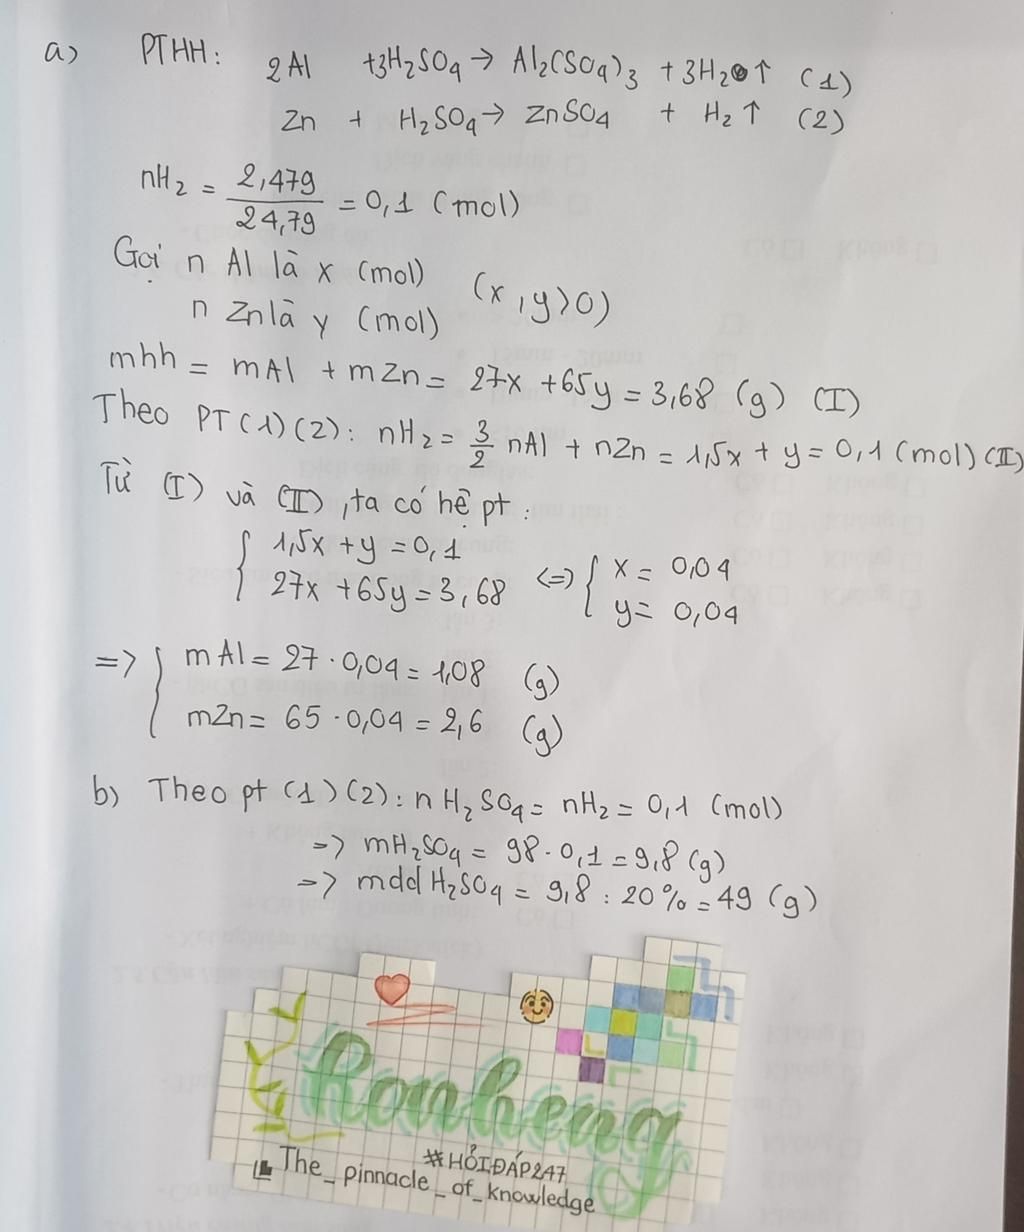 a) PTHH: 2Al +3H₂SO₄ → Al₂(SO₄)₃ + 3H₂↑ (1)
Zn + H₂SO₄ → ZnSO₄ + H₂↑ (2)
nH₂ = 2,479 / 24,79 = 0,1 (mol)
Gọi n Al là x (mol)
n Zn là y (mol) (x, y>0)
mhh = mAl + mZn = 27x +65y = 3,68 (g) (I)
Theo PT(1)(2): nH₂ = 3/2 nAl + nZn = 1,5x + y = 0,1 (mol) (II)
Từ (I) và (II), ta có hệ pt:
{ 1,5x + y = 0,1
27x +65y = 3,68 <=> { x = 0,04
y = 0,04
=> { mAl = 27 . 0,04 = 1,08 (g)
mZn = 65 . 0,04 = 2,6 (g)
b) Theo pt (1)(2): nH₂SO₄ = nH₂ = 0,1 (mol)
=> mH₂SO₄ = 98 . 0,1 = 9,8 (g)
=> mdd H₂SO₄ = 9,8 : 20% = 49 (g)
#HỎIĐÁP247
The_pinnacle_of_knowledge